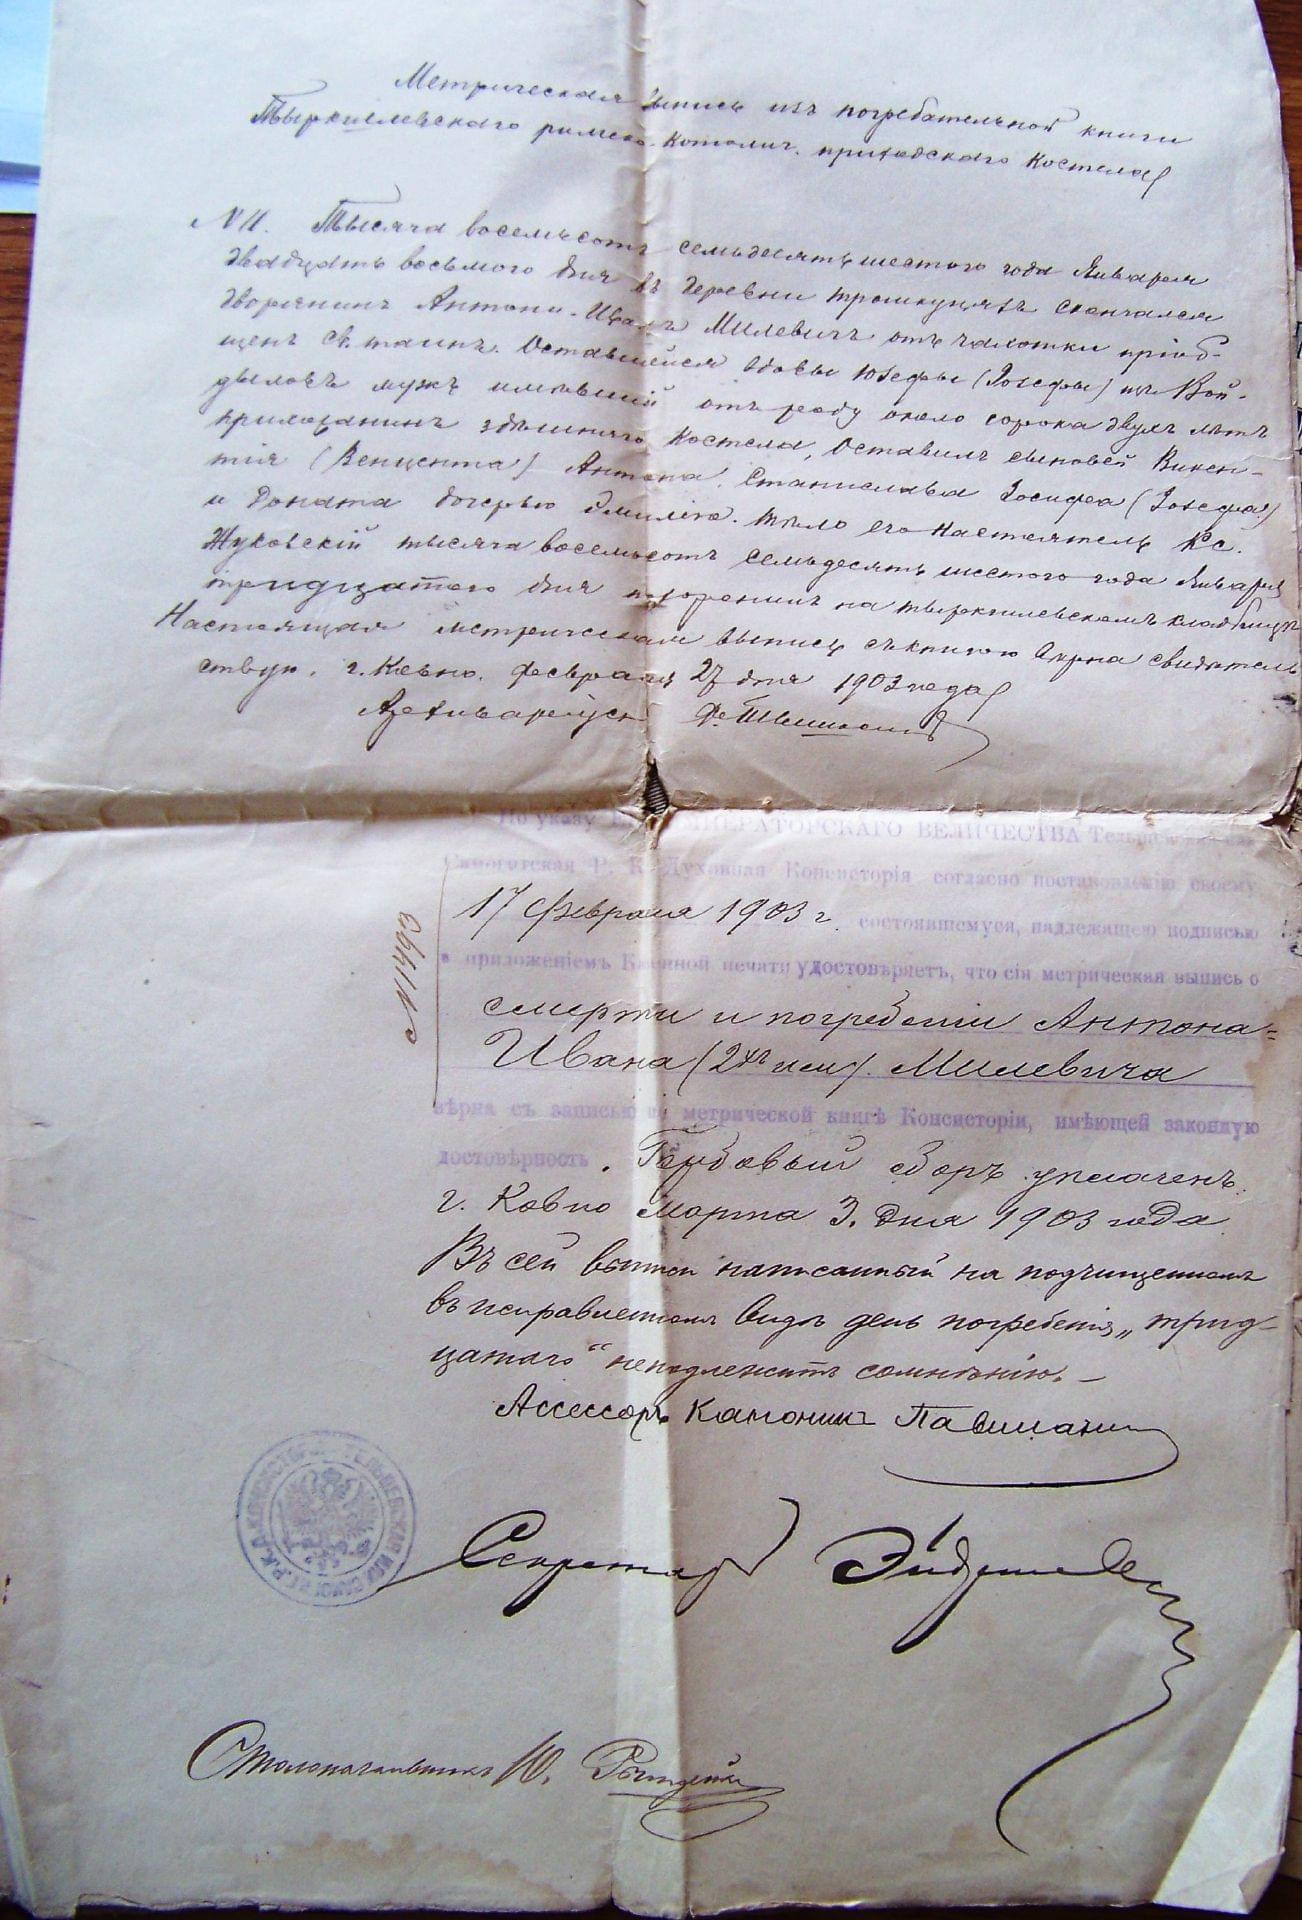 Метрическая выпись изъ погребательной книги
Тыркшлевскаго римско-католич. приходскаго костела
№ 11. Тысяча восемьсотъ семьдесятъ шестого года Января
двадцать восьмого дня въ деревни скончался
дворянинъ Антони-Иванъ Милевичъ отъ чахотки пріоб-
щенъ Св. таинъ. Оставшейся вдовы Юзефы (Іозефы) изъ Вой-
мужъ имѣвшій отъ роду около сорока двухъ лѣтъ
прихожанинъ здѣшняго костела, оставилъ сыновей Викен-
тія (Венцента) Антона, Станислава Іосифа (Іозефа)
и Доната дочерью Эмилію. тѣло его настоятель Кс.
Жуковскій тысяча восемьсотъ семьдесятъ шестого года Января
тридцатого дня похоронилъ на кладбищѣ
Настоящая метрическая выпись съ книгою вѣрна свидѣтель-
ствую. г. Ковно. Февраля 27 дня 1903 года
Архиваріусъ
По указу ЕГО ИМПЕРАТОРСКАГО ВЕЛИЧЕСТВА
Самогитская Р. К. Духовная Консисторія согласно постановленію своему
17 февраля 1903 г. состоявшемуся, надлежащею подписью
№ 1493
и приложеніемъ Казенной печати удостовѣряетъ, что сія метрическая выпись о
смерти и погребеніи Антона-
Ивана (2хъ им.) Милевича
вѣрна съ записью въ метрической книгѣ Консисторіи, имѣющей законную
достовѣрность. Гербовый сборъ уплаченъ.
г. Ковно Марта 3. дня 1903 года
Въ сей выписи написанный на подчищенномъ
въ исправленномъ видѣ день погребенія „трид-
цатаго“ неподлежитъ сомнѣнію. —
Ассессоръ Каноникъ
Секретарь
Столоначальникъ Ю.